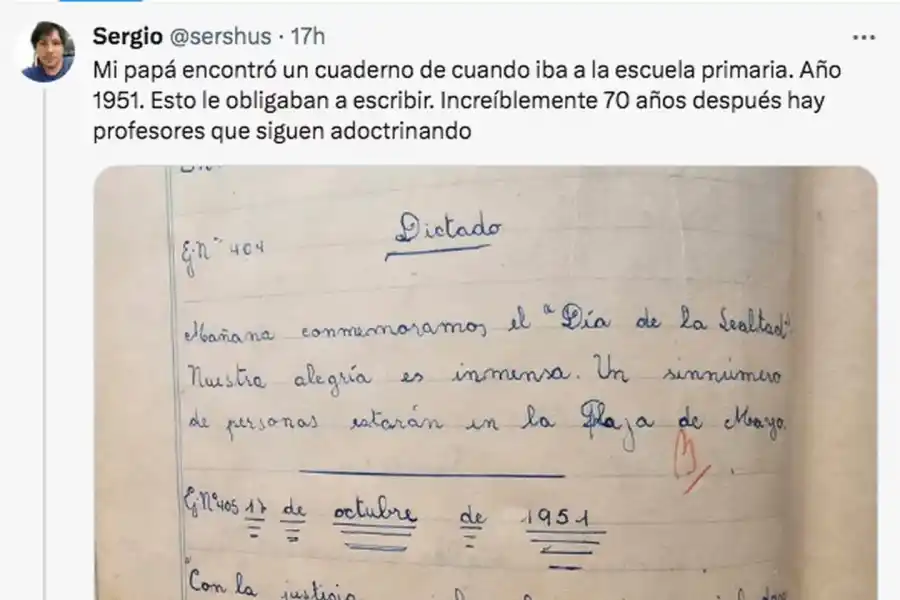 Sergio @sershus · 17h
Mi papá encontró un cuaderno de cuando iba a la escuela primaria. Año
1951. Esto le obligaban a escribir. Increíblemente 70 años después hay
profesores que siguen adoctrinando
Dictado
E.Nº 404
Mañana conmemoramos el "Día de la Lealtad".
Nuestra alegría es inmensa. Un sinnúmero
de personas estarán en la Plaza de Mayo.
E.Nº 405 17 de octubre de 1951
"Con la justicia